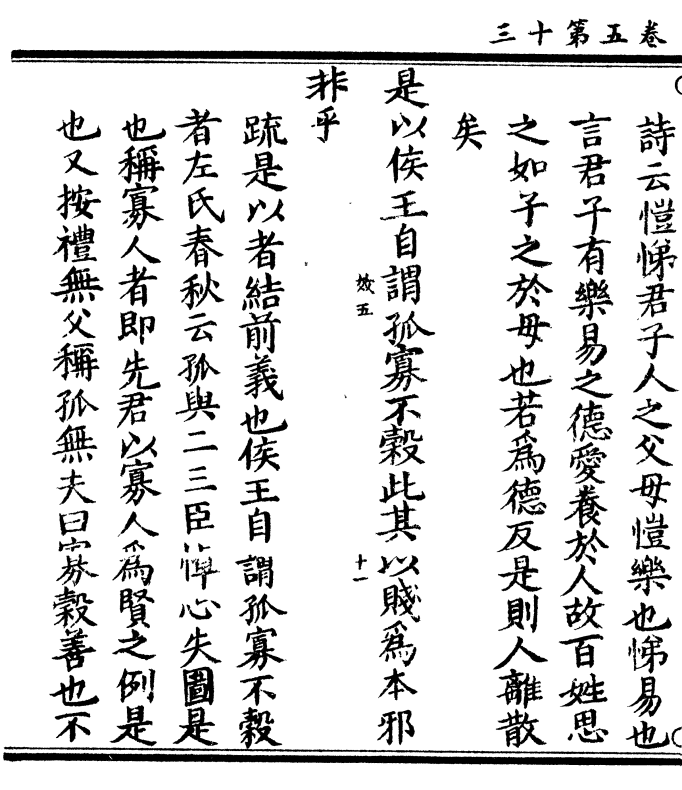 三十第五卷
詩云愷悌君子人之父母愷樂也悌易也
言君子有樂易之德愛養於人故百姓思
之如子之於母也若爲德反是則人離散
矣
是以侯王自謂孤寡不糓此其以賤爲本邪
效五
十一
非乎
疏是以者結前義也侯王自謂孤寡不糓
者左氏春秋云孤與二三臣悼心失圖是
也稱寡人者即先君以寡人爲賢之例是
也又按禮無父稱孤無夫曰寡糓善也不